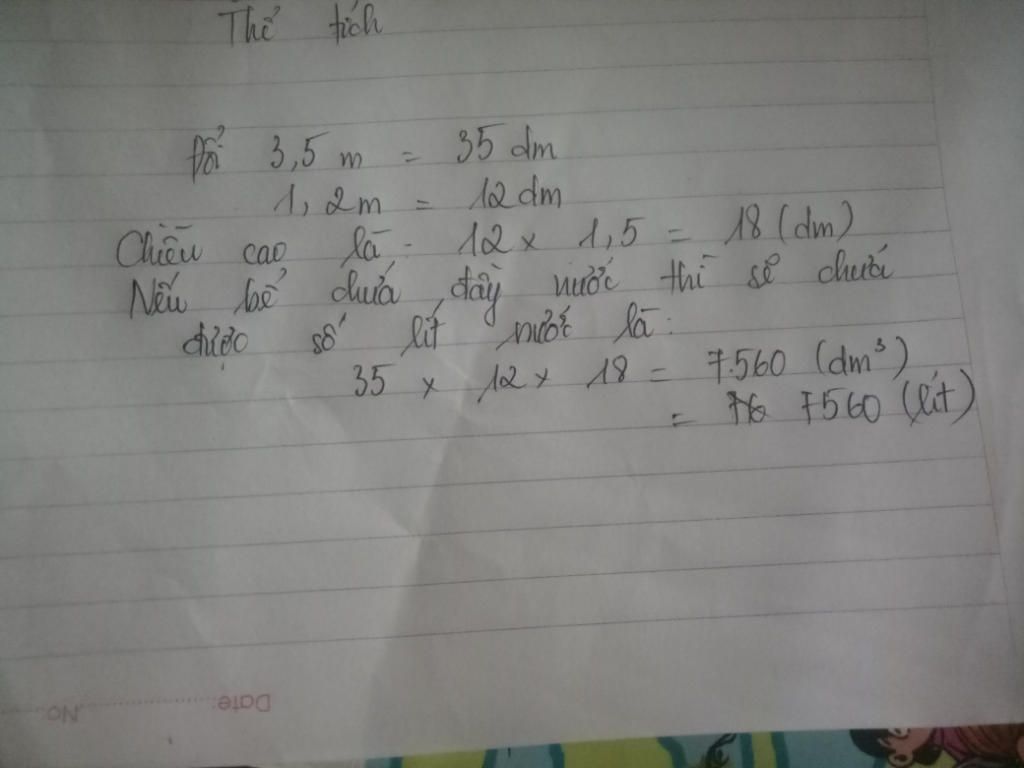 Thể tích
Đổi 3,5 m = 35 dm
1,2m = 12dm
Chiều cao là: 12 x 1,5 = 18 (dm)
Nếu bể chứa đầy nước thì sẽ chứa
được số lít nước là:
35 x 12 x 18 = 7.560 (dm³)
= 7560 (lít)
Date: No: